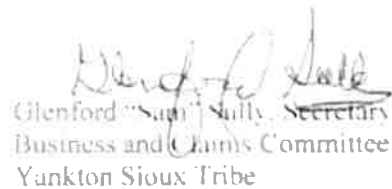 Glenford "Sam" Sully, Secretary
Business and Claims Committee
Yankton Sioux Tribe